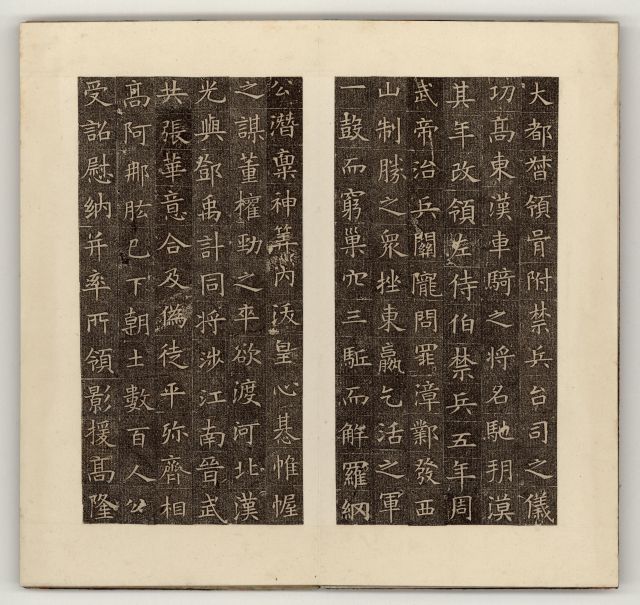 大都督領胥附禁兵台司之儀
功高東漢車騎之將名馳朔漠
其年改領左侍伯禁兵五年周
武帝治兵關隴問罪漳鄴發西
山制勝之眾挫東嬴乞活之軍
一鼓而窮巢穴三駈而解羅網
公潛稟神筭內沃皇心帷幄
之謀董權勁之卒欲渡河北漢
光與鄧禹計同將涉江南晉武
共張華意合及偽徒平弥齊相
高阿那肱已下朝士數百人公
受詔慰納并率所領影援高隆